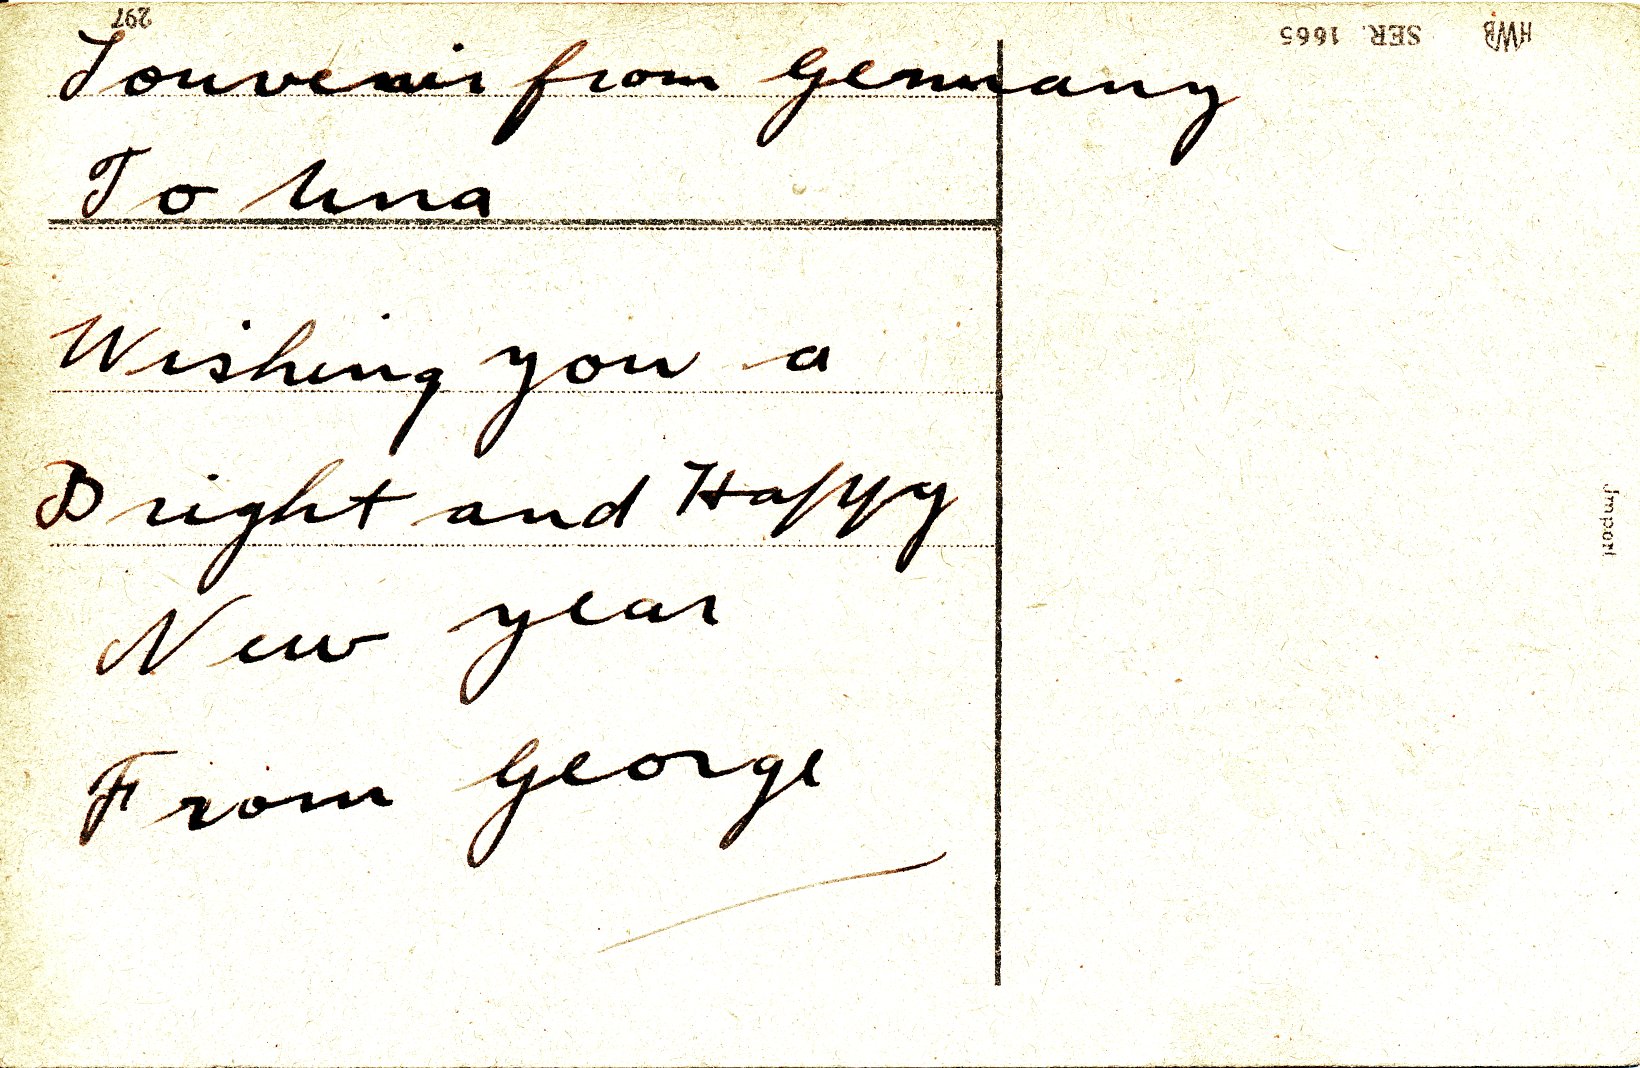 297
HWB SER. 1665
Souvenir from Germany
To Una
Wishing you a
Bright and Happy
New year
From George
Import